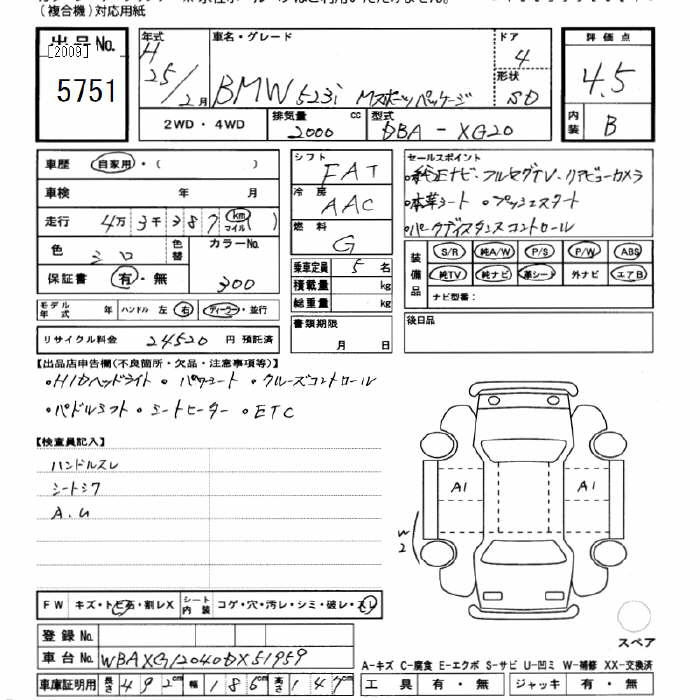 (複合機)対応用紙
出品No.
[2009]
5751
年式 車名・グレード ドア 評価点
H 25/2月 BMW 523i Mスポーツパッケージ 4 4.5
形状 SD
2WD・4WD 排気量 2000 cc 型式 DBA-XG20 内装 B
車歴 自家用・( )
車検 年 月
走行 4万3千387 km マイル ( )
色 シロ 色替 カラーNo. 300
保証書 有・無
モデル年式 年 ハンドル 左 右 ディーラー・並行
リサイクル料金 24520 円 預託済
シフト FAT
冷房 AAC
燃料 G
乗車定員 5 名
積載量 kg
総重量 kg
書類期限
月 日
セールスポイント
・純正ナビ・フルセグTV・リアビューカメラ
・本革シート ・プッシュスタート
・パークディスタンスコントロール
装備品 S/R 純A/W P/S P/W ABS
純TV 純ナビ 革シート 外ナビ エアB
ナビ型番:
後日品
【出品店申告欄(不良箇所・欠品・注意事項等)】
・HIDヘッドライト ・パワーシート ・クルーズコントロール
・パドルシフト ・シートヒーター ・ETC
【検査員記入】
ハンドルスレ
シートシワ
A.U
A1 A1
W2
FW キズ・トビ石・割レX シート内装 コゲ・穴・汚レ・シミ・破レ・スレ
登録No.
車台No. WBAXG12040DX51959
車庫証明用 長さ 492cm 幅 186cm 高さ 147cm
スペア
A-キズ C-腐食 E-エクボ S-サビ U-凹ミ W-補修 XX-交換済
工具 有・無 ジャッキ 有・無